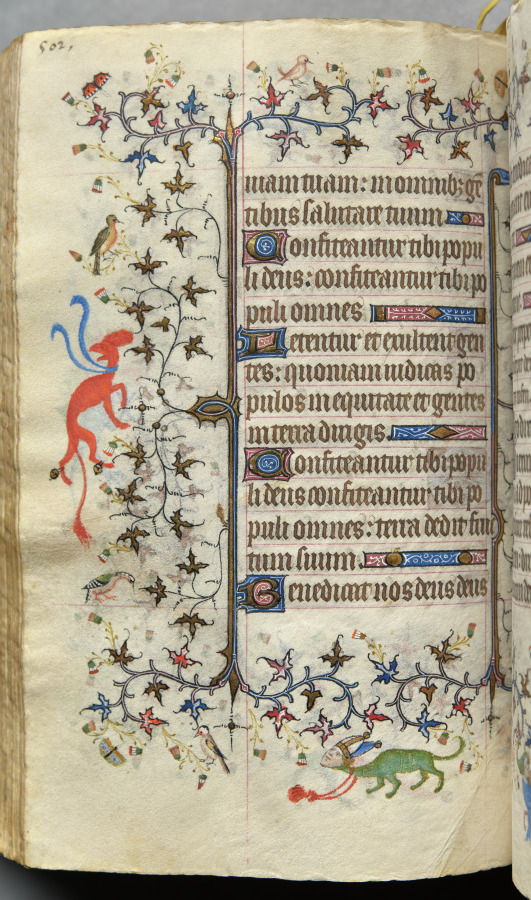 502,
uiam tuam: in omnib; ge
tibus salutare tuum
Confiteantur tibi popu
li deus: confiteantur tibi po
puli omnes
Letentur et exultent gen
tes: quoniam iudicas po
pulos in equitate et gentes
in terra dirigis.
Confiteantur tibi popu
li deus confiteantur tibi po
puli omnes: terra dedit fruc
tum suum.
Benedicat nos deus deus